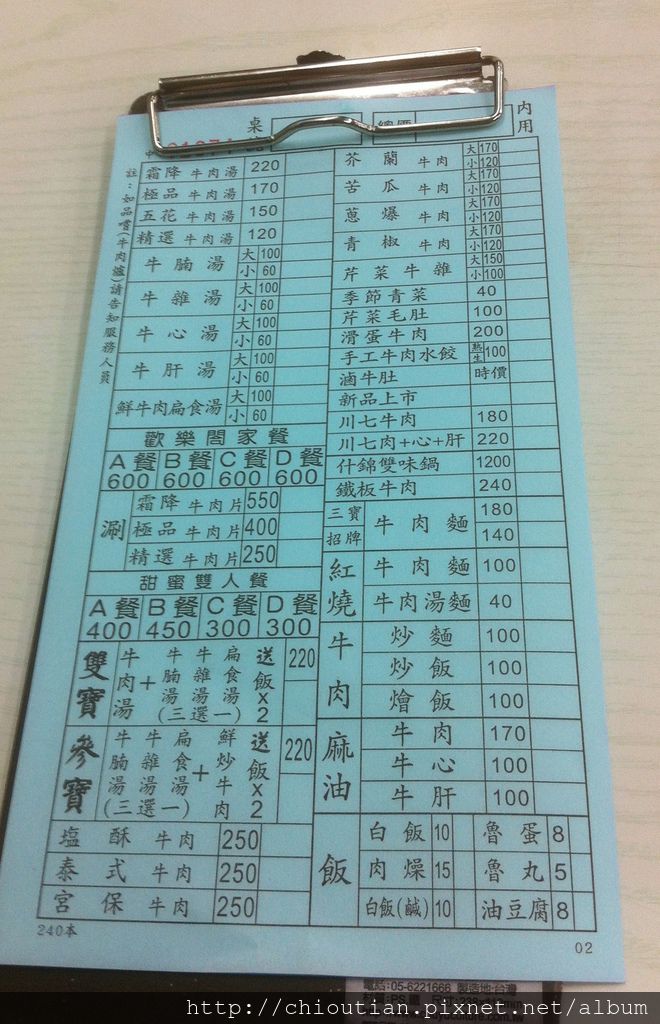 桌
總價
內用
註:如品嚐(牛肉爐)請告知服務人員
霜降 牛肉湯 220
極品 牛肉湯 170
五花 牛肉湯 150
精選 牛肉湯 120
牛腩湯 大 100
小 60
牛雜湯 大 100
小 60
牛心湯 大 100
小 60
牛肝湯 大 100
小 60
鮮牛肉扁食湯 大 100
小 60
歡樂閤家餐
A餐 B餐 C餐 D餐
600 600 600 600
涮
霜降 牛肉片 550
極品 牛肉片 400
精選 牛肉片 250
甜蜜雙人餐
A餐 B餐 C餐 D餐
400 450 300 300
雙寶
牛肉湯 + 牛腩湯 牛雜湯 扁食湯 (三選一) 送飯x2 220
參寶
牛腩湯 牛雜湯 扁食湯 (三選一) + 鮮炒牛肉 送飯x2 220
塩酥 牛肉 250
泰式 牛肉 250
宮保 牛肉 250
240本
芥蘭 牛肉 大 170
小 120
苦瓜 牛肉 大 170
小 120
蔥爆 牛肉 大 170
小 120
青椒 牛肉 大 170
小 120
芹菜牛雜 大 150
小 100
季節青菜 40
芹菜毛肚 100
滑蛋牛肉 200
手工牛肉水餃 熟 生 100
滷牛肚 時價
新品上市
川七牛肉 180
川七肉+心+肝 220
什錦雙味鍋 1200
鐵板牛肉 240
三寶 招牌 牛肉麵 180
140
紅燒
牛肉麵 100
牛肉湯麵 40
牛肉
炒麵 100
炒飯 100
燴飯 100
麻油
牛肉 170
牛心 100
牛肝 100
飯
白飯 10 魯蛋 8
肉燥 15 魯丸 5
白飯(鹹) 10 油豆腐 8
02
電話:05-6221666 製造地:台灣
http://chioutian.pixnet.net/album